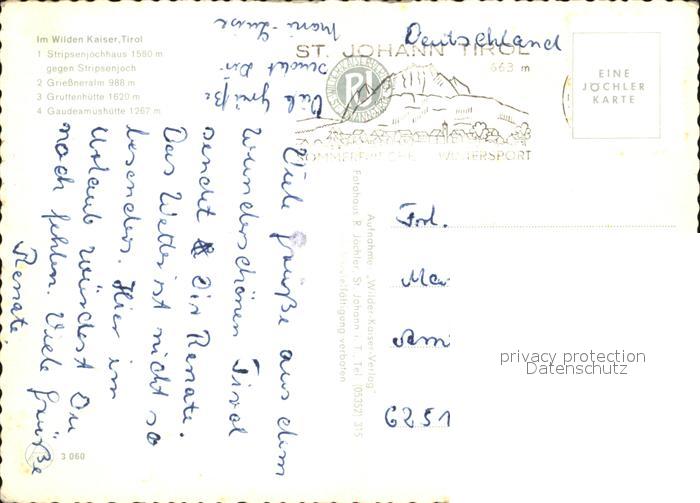 Im Wilden Kaiser, Tirol
1 Stripsenjochhaus 1580 m
gegen Stripsenjoch
2 Grießneralm 988 m
3 Gruttenhütte 1620 m
4 Gaudeamushütte 1267 m
Viele Grüße
sendet Dir
Marie-Luise
Viele Grüße aus dem
wunderschönen Tirol
sendet Dir Renate.
Das Wetter ist nicht so
besonders. Hier im
Urlaub würdest Du
noch fehlen. Viele Grüße
Renate
3 060
Aufnahme „Wilder-Kaiser-Verlag"
Fotohaus R. Jöchler, St. Johann i. T., Tel. (05352) 315
Vervielfältigung verboten
ST. JOHANN TIROL
663 m
SOMMERFRISCHE WINTERSPORT
EINE
JÖCHLER
KARTE
Deutschland
Frl.
6251
privacy protection
Datenschutz